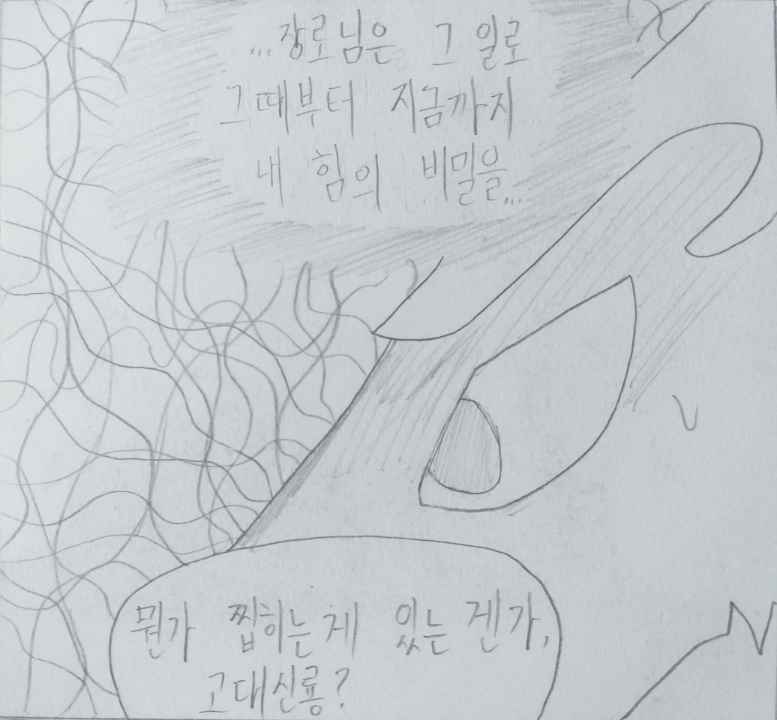 ...장로님은 그 일로
그때부터 지금까지
내 힘의 비밀을...
뭔가 찝히는 게 있는 겐가,
고대신룡?